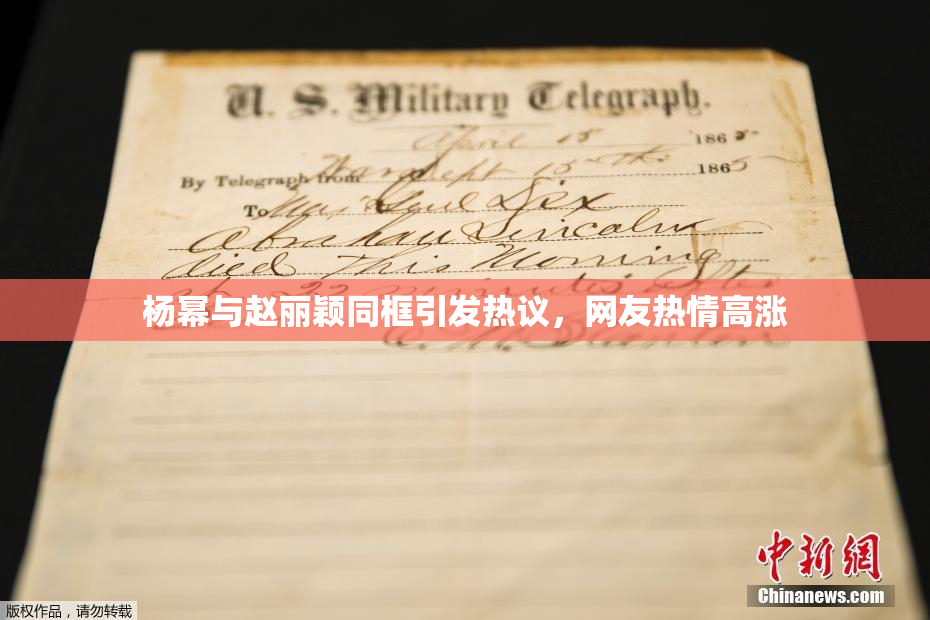 U. S. Military Telegraph.
April 15 1865
By Telegraph from War Dept 15th 1865
To Maj Genl Dix
Abraham Lincoln
died This Morning
at 22 minutes after
杨幂与赵丽颖同框引发热议，网友热情高涨
E. M. Stanton
中新网
Chinanews.com
版权作品，请勿转载